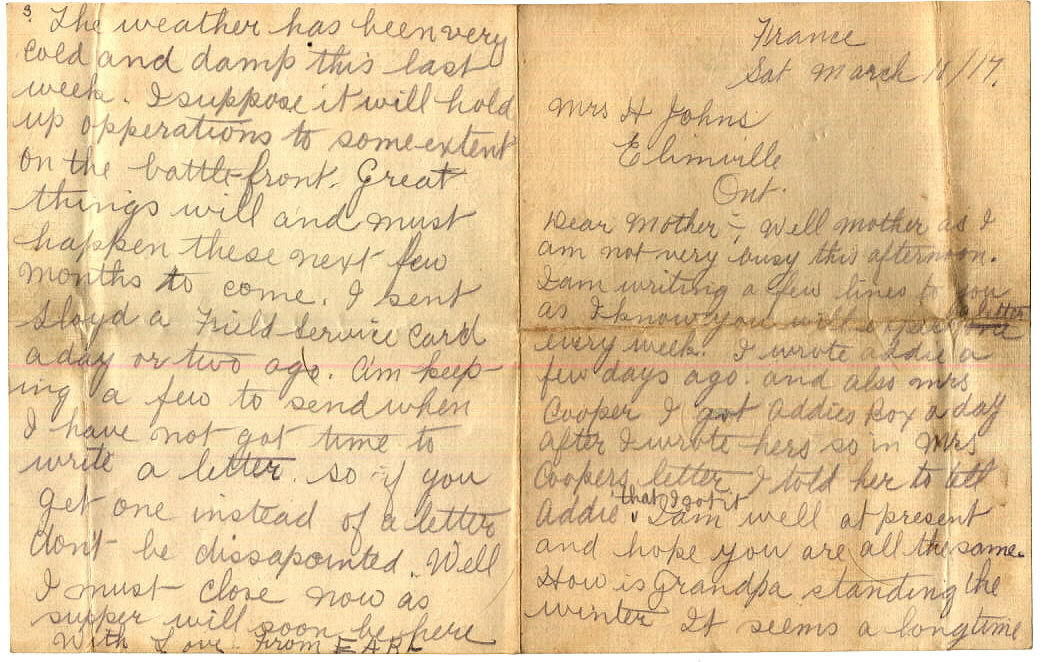 France
Sat March 11/17.
Mrs H Johns
Elimville
Ont.
Dear Mother:- Well Mother as I
am not very busy this afternoon.
I am writing a few lines to you
as I know you will expect a letter
every week. I wrote addie a
few days ago. and also Mrs
Cooper I got Addies Box a day
after I wrote hers so in Mrs
Coopers letter I told her to tell
Addie that I got it I am well at present
and hope you are all the same.
How is Grandpa standing the
winter It seems a longtime
3.
The weather has been very
cold and damp this last
week. I suppose it will hold
up opperations to some extent
on the battle-front. Great
things will and must
happen these next few
months to come. I sent
Lloyd a Field Service Card
a day or two ago. Am keep-
ing a few to send when
I have not got time to
write a letter. so if you
get one instead of a letter
don't be dissapointed. Well
I must close now as
supper will soon be here
With Love From EARL